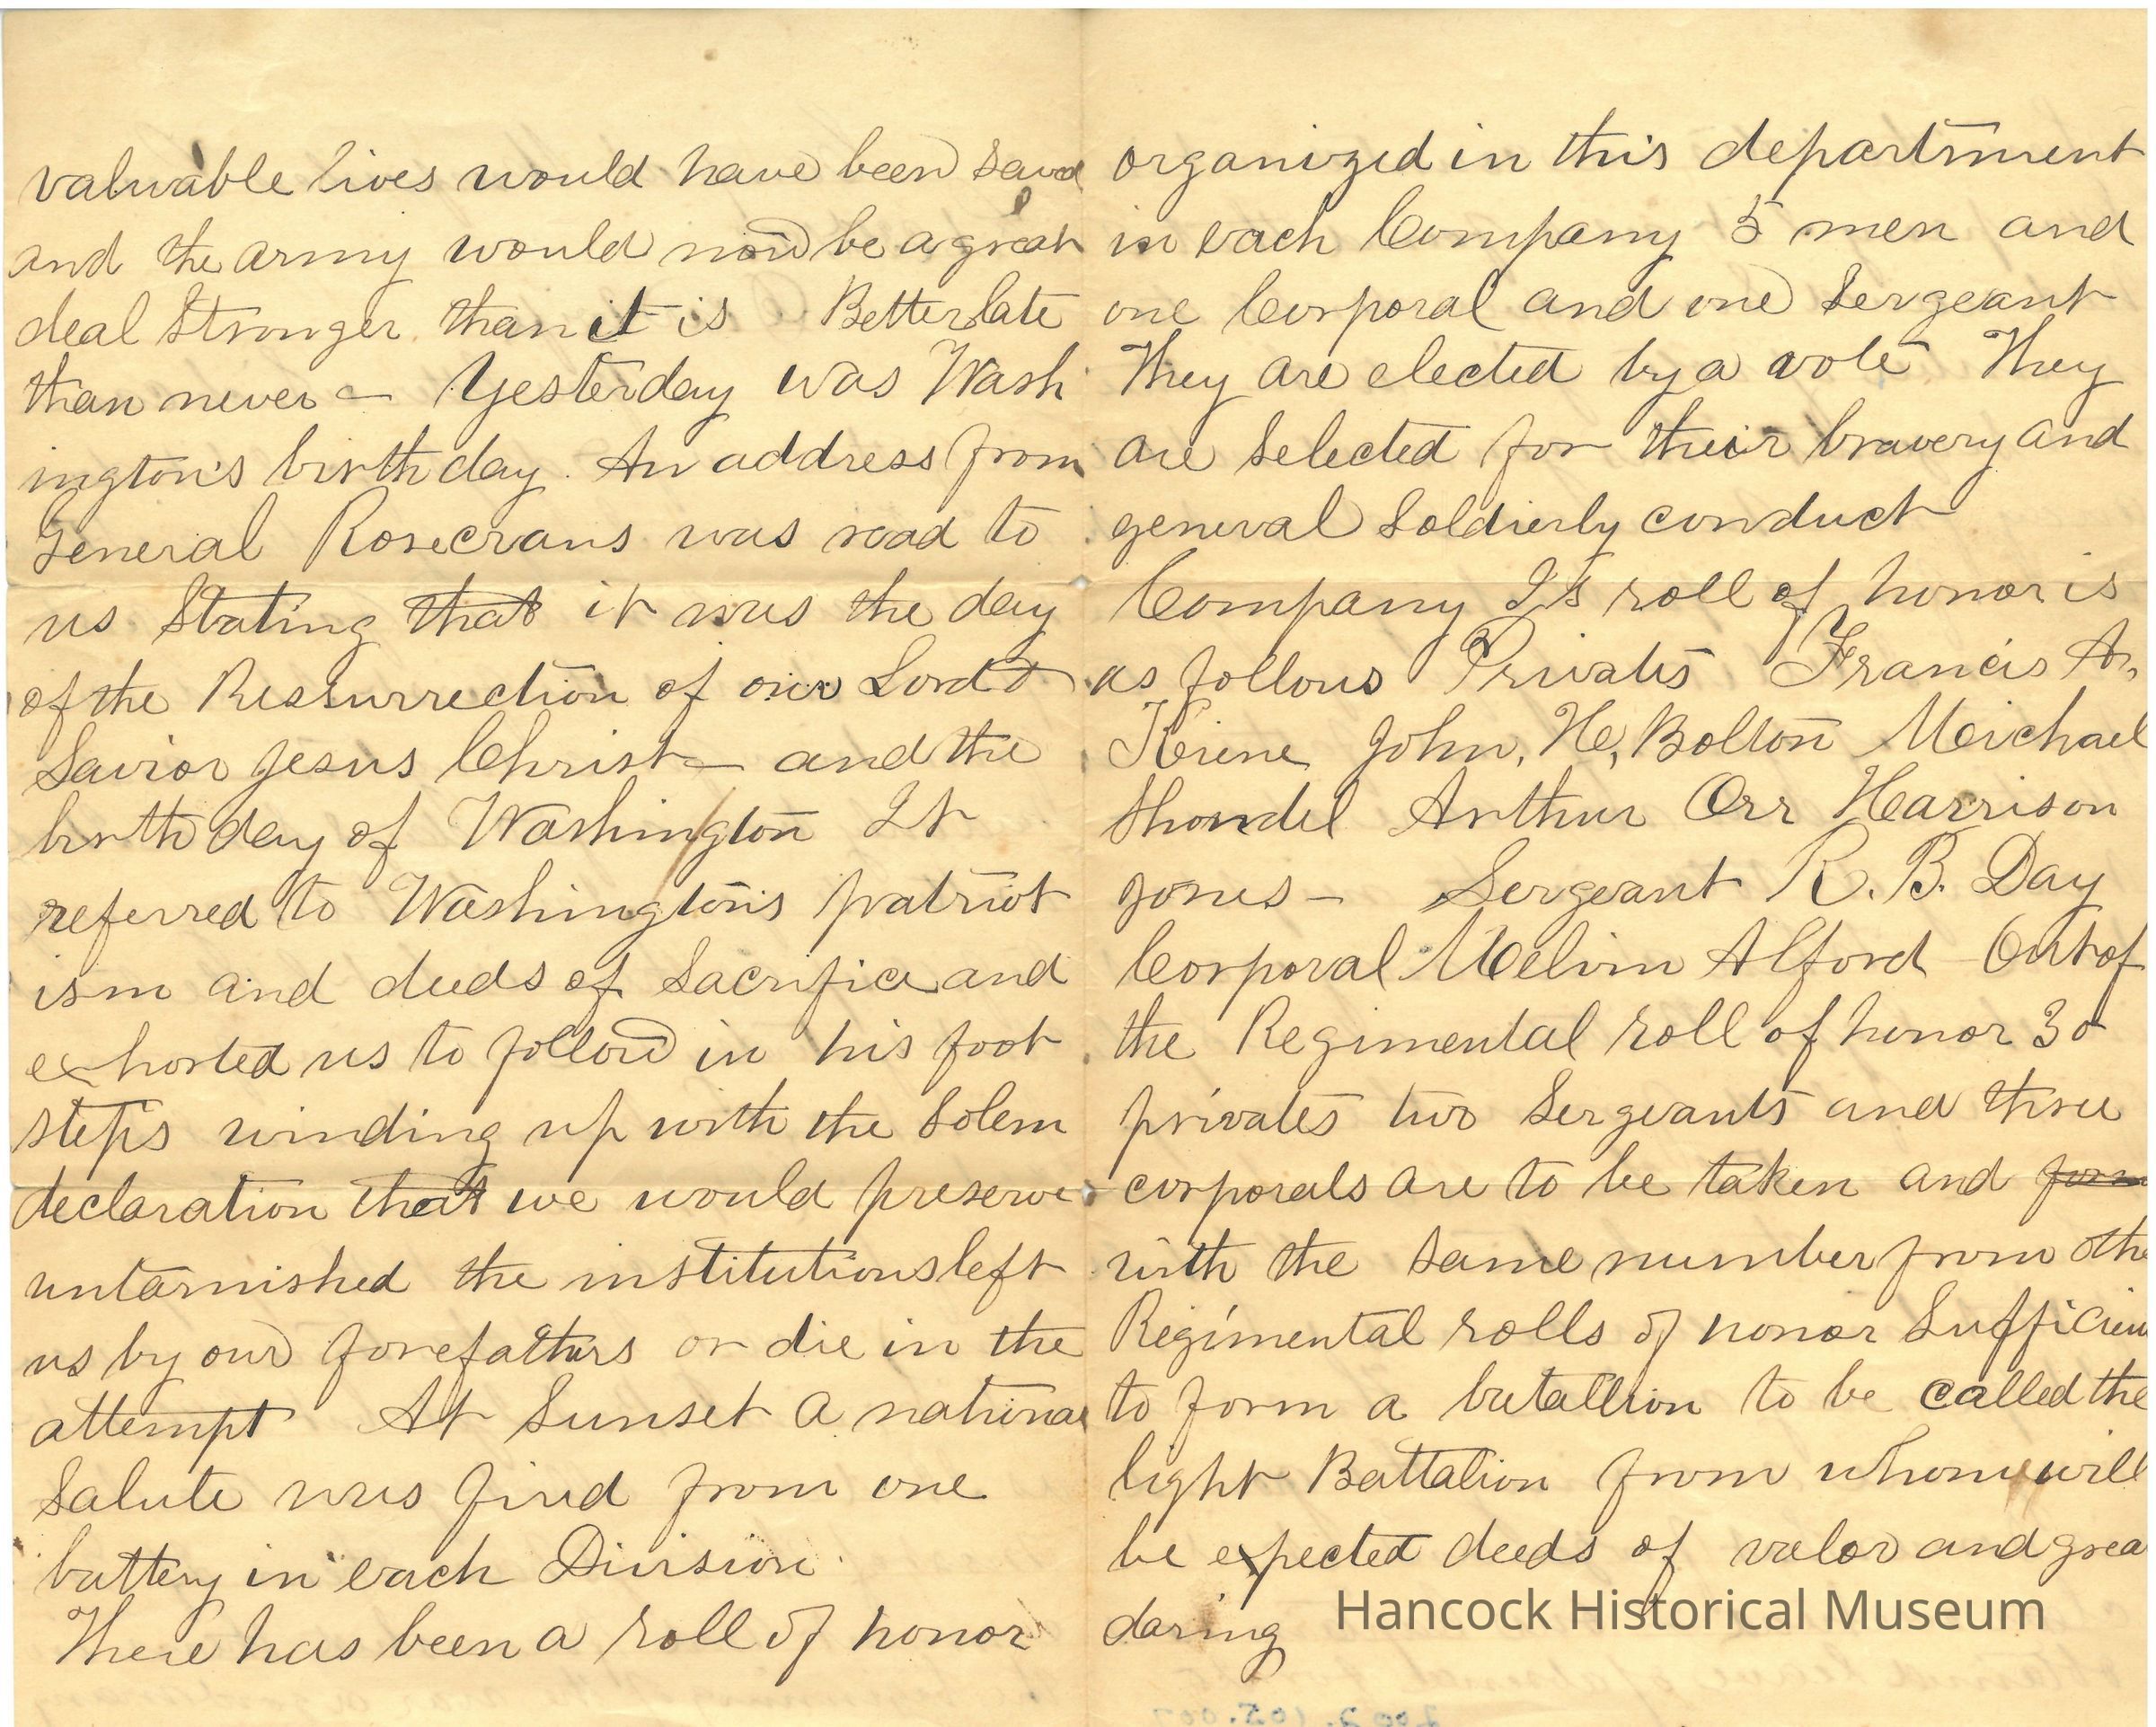 valuable lives would have been saved
and the army would now be a great
deal stronger than it is Better late
than never – Yesterday was Wash
ington's birth day. An address from
General Rosecrans was read to
us stating that it was the day
of the Ressurrection of our Lord &
Savior Jesus Christ – and the
birth day of Washington It
referred to Washington's patriot
ism and deeds of sacrifice and
exhorted us to follow in his foot
steps winding up with the solem
declaration that we would preserve
untarnished the institutions left
us by our forefathers or die in the
attempt At Sunset a national
salute was fired from one
battery in each Division.
There has been a roll of honor
organized in this department
in each Company 5 men and
one Corporal and one Sergeant
They are elected by a vote They
are selected for their bravery and
general soldierly conduct
Company I's roll of honor is
as follows Privates Francis A.
Kiene John, H, Bolton Meichael
Shondel Arthur Orr Harrison
Jones – Sergeant R. B. Day
Corporal Melvin Alford Out of
the Regimental roll of honor 30
privates two Sergeants and three
corporals are to be taken and form
with the same number from othe
Regimental rolls of honor Sufficien
to form a batallion to be called the
light Battalion from whom will
be expected deeds of valor and grea
daring
Hancock Historical Museum